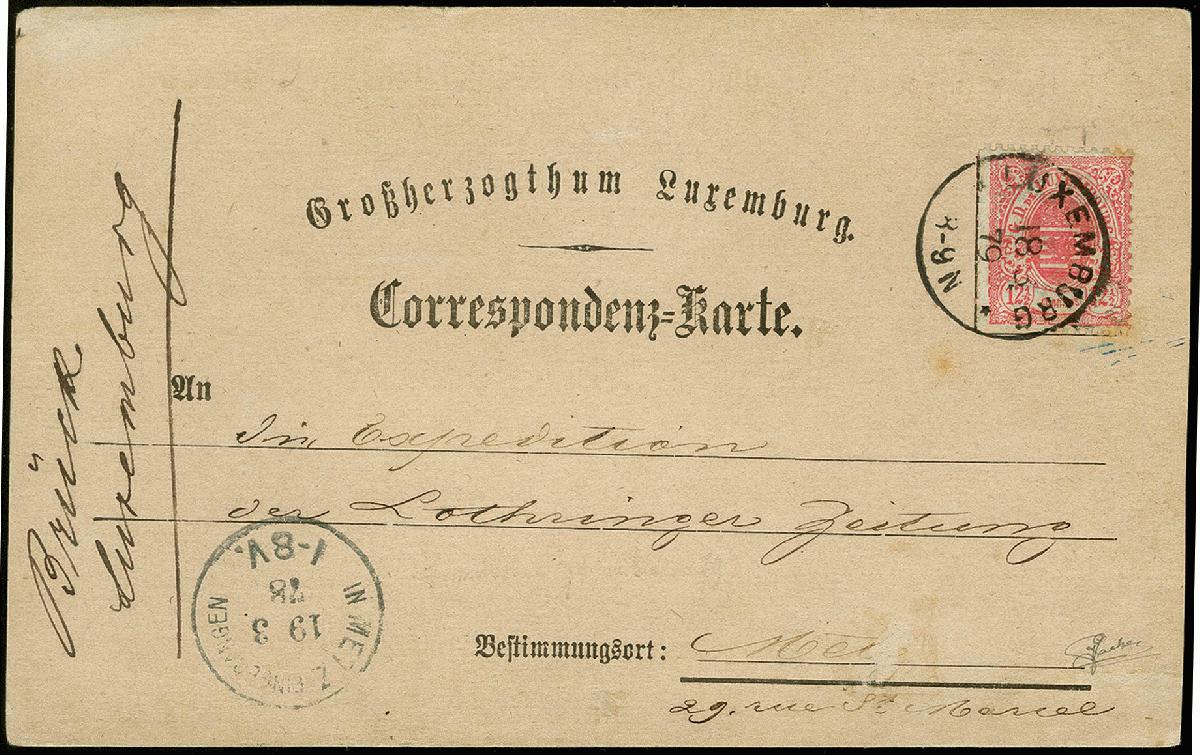 Großherzogthum Luxemburg.
Correspondenz-Karte.
LUXEMBURG
18 3
79
8-9 N
12½
Brück
Luxemburg
An
die Expedition
der Lothringer Zeitung
Bestimmungsort: Metz
29. rue St Marcel
EINGEGANGEN IN METZ
19 3
78
1-8V.